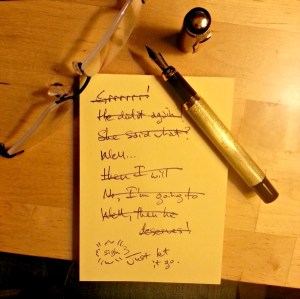 Grrrrrr!
He did it again!
She said what?
Well...
then I will
No, I'm going to
Well, then he
deserves!
{sigh} Just let
it go.